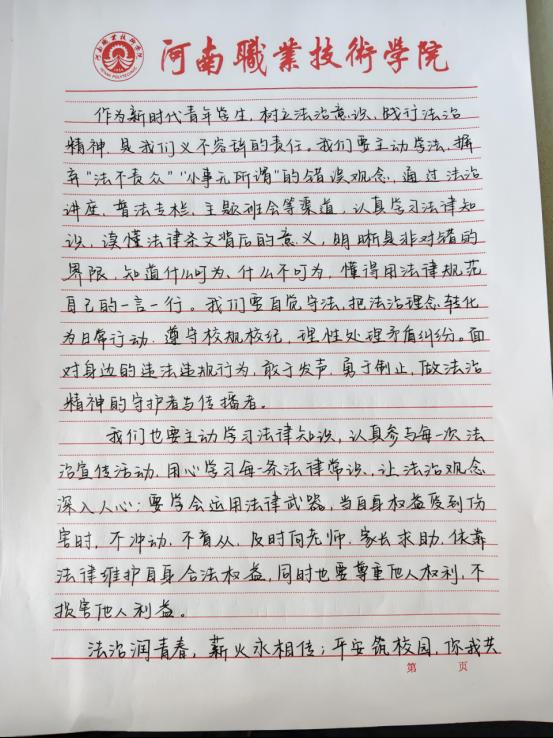 河南職業技術学院
作为新时代青年学生,树立法治意识、践行法治
精神,是我们义不容辞的责任。我们要主动学法,摒
弃"法不责众""小事无所谓"的错误观念,通过法治
讲座、普法专栏、主题班会等渠道,认真学习法律知
识,读懂法律条文背后的意义,明晰是非对错的
界限,知道什么可为、什么不可为,懂得用法律规范
自己的一言一行。我们要自觉守法,把法治理念转化
为日常行动,遵守校规校纪,理性处理矛盾纠纷。面
对身边的违法违规行为,敢于发声、勇于制止,做法治
精神的守护者与传播者。
我们也要主动学习法律知识,认真参与每一次法
治宣传活动,用心学习每一条法律常识,让法治观念
深入人心;要学会运用法律武器,当自身权益受到伤
害时,不冲动、不盲从,及时向老师、家长求助,依靠
法律维护自身合法权益,同时也要尊重他人权利,不
损害他人利益。
法治润青春,薪火永相传;平安筑校园,你我共
第 页